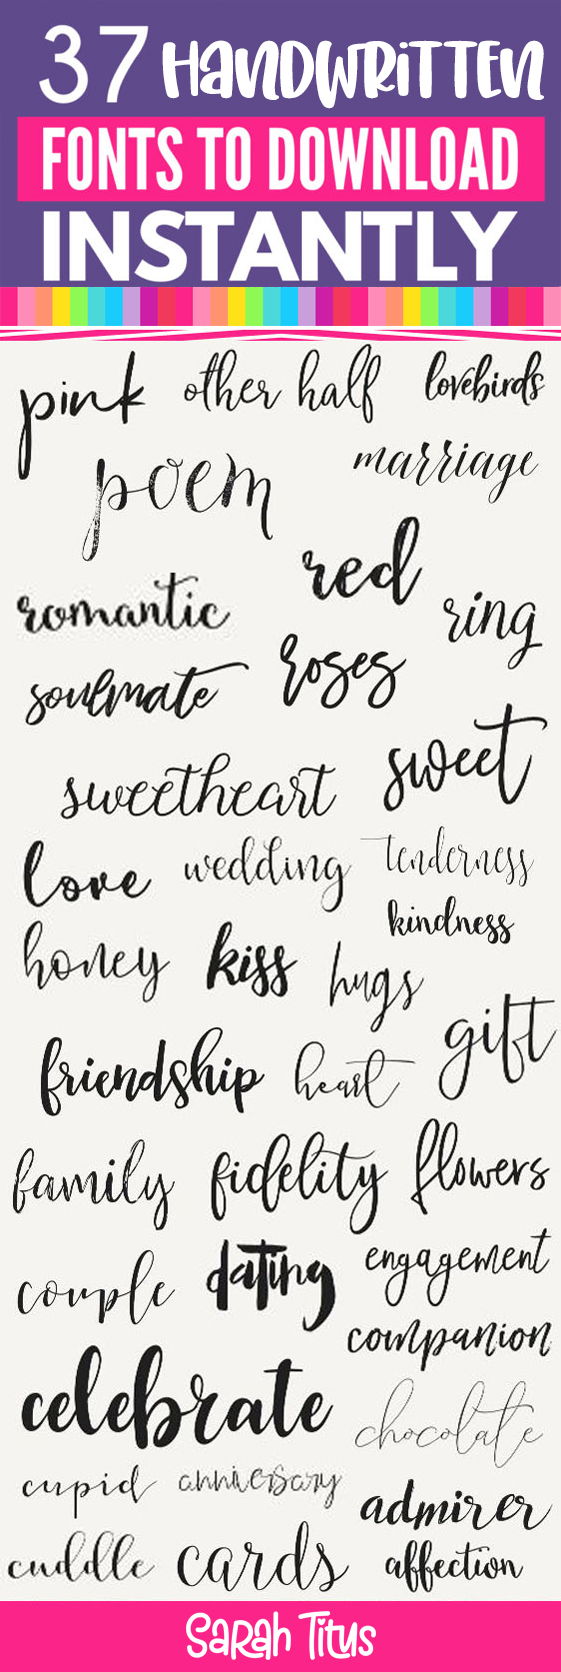 37 HANDWRITTEN
FONTS TO DOWNLOAD
INSTANTLY
pink other half lovebirds
poem marriage
red
romantic ring
soulmate roses
sweetheart sweet
love wedding tenderness
kindness
honey kiss hugs
gift
friendship heart
family fidelity flowers
couple dating engagement
companion
celebrate chocolate
cupid anniversary
admirer
cuddle cards affection
SARAH TITUS